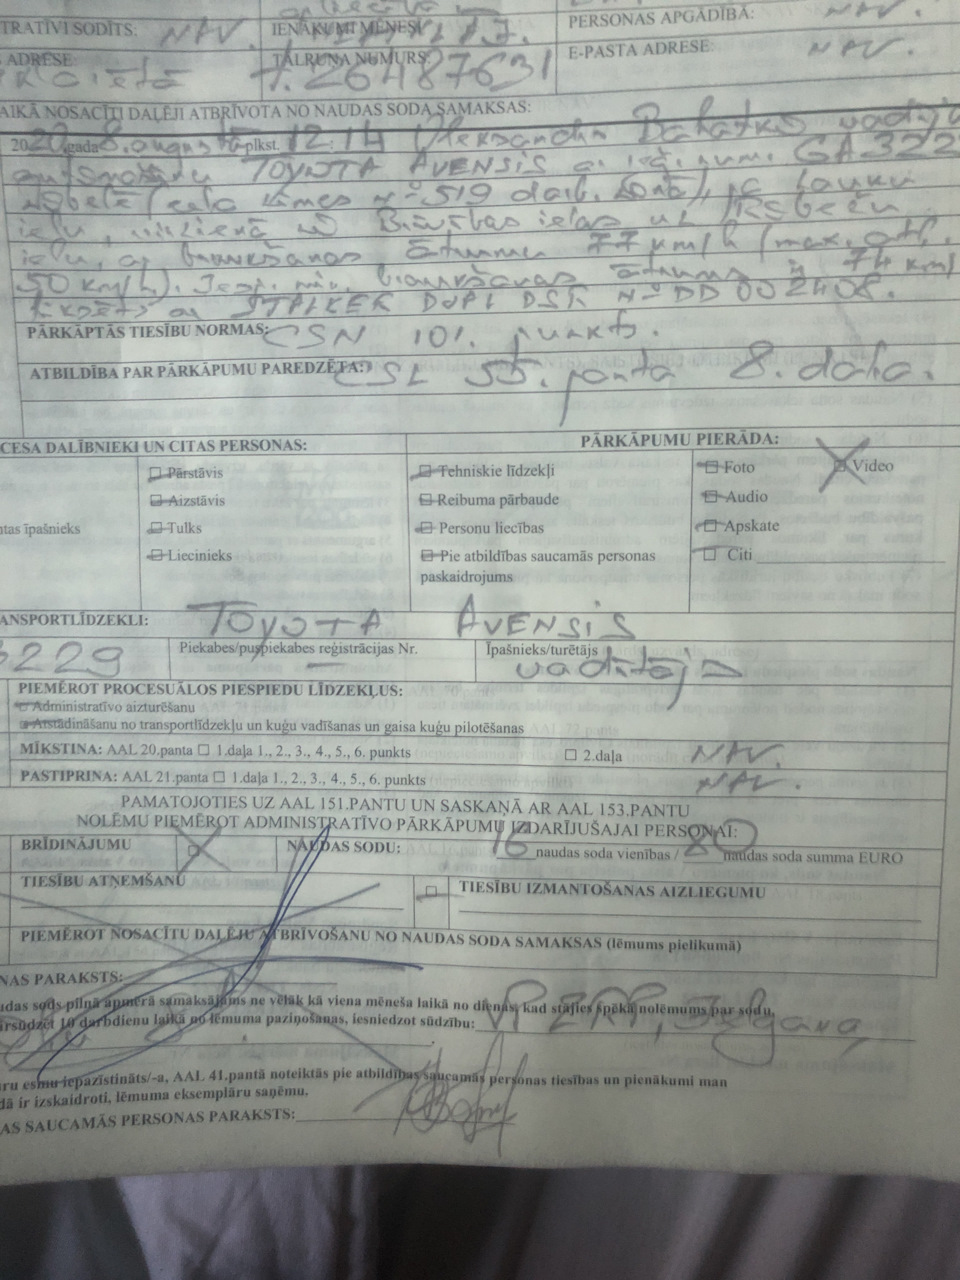 TRATĪVI SODĪTS: NAV. IENĀKUMI MĒNESĪ PERSONAS APGĀDĪBĀ: NAV.
ADRESE: TĀLRUŅA NUMURS: 26487631 E-PASTA ADRESE: NAV.
AIKĀ NOSACĪTI DAĻĒJI ATBRĪVOTA NO NAUDAS SODA SAMAKSAS:
2020 gada 8. augustā plkst. 12:14 Aleksandrs vadīja
TOYOTA AVENSIS ar GA322
N-519
ielu, virzienā no ielas uz
ielu, ar braukšanas ātrumu 77 km/h (max. atļ.
50 km/h). braukšanas ātrums ir 74 km/
ar STALKER DUAL DSR N- DD 002408.
PĀRKĀPTĀS TIESĪBU NORMAS: CSN 101. punkts.
ATBILDĪBA PAR PĀRKĀPUMU PAREDZĒTA: CSL 55. panta 8. daļa.
CESA DALĪBNIEKI UN CITAS PERSONAS: PĀRKĀPUMU PIERĀDA:
Pārstāvis Tehniskie līdzekļi Foto Video
Aizstāvis Reibuma pārbaude Audio
ntas īpašnieks Tulks Personu liecības Apskate
Liecinieks Pie atbildības saucamās personas paskaidrojums Citi
ANSPORTLĪDZEKLI: TOYOTA AVENSIS
3229 Piekabes/puspiekabes reģistrācijas Nr. Īpašnieks/turētājs vadītājs
PIEMĒROT PROCESUĀLOS PIESPIEDU LĪDZEKĻUS:
Administratīvo aizturēšanu
Atstādināšanu no transportlīdzekļu un kuģu vadīšanas un gaisa kuģu pilotēšanas
MĪKSTINA: AAL 20.panta 1.daļa 1., 2., 3., 4., 5., 6. punkts 2.daļa NAV.
PASTIPRINA: AAL 21.panta 1.daļa 1., 2., 3., 4., 5., 6. punkts NAV.
PAMATOJOTIES UZ AAL 151.PANTU UN SASKAŅĀ AR AAL 153.PANTU
NOLĒMU PIEMĒROT ADMINISTRATĪVO PĀRKĀPUMU IZDARĪJUŠAJAI PERSONAI:
BRĪDINĀJUMU NAUDAS SODU: 16 naudas soda vienības / 80 naudas soda summa EURO
TIESĪBU ATŅEMŠANU TIESĪBU IZMANTOŠANAS AIZLIEGUMU
PIEMĒROT NOSACĪTU DAĻĒJU ATBRĪVOŠANU NO NAUDAS SODA SAMAKSAS (lēmums pielikumā)
NAS PARAKSTS:
udas sods pilnā apmērā samaksājams ne vēlāk kā viena mēneša laikā no dienas, kad stājies spēkā nolēmums par sodu,
ārsūdzēt 10 darbdienu laikā no lēmuma paziņošanas, iesniedzot sūdzību:
aru esmu iepazīstināts/-a, AAL 41.pantā noteiktās pie atbildības saucamās personas tiesības un pienākumi man
dā ir izskaidroti, lēmuma eksemplāru saņēmu.
AS SAUCAMĀS PERSONAS PARAKSTS: